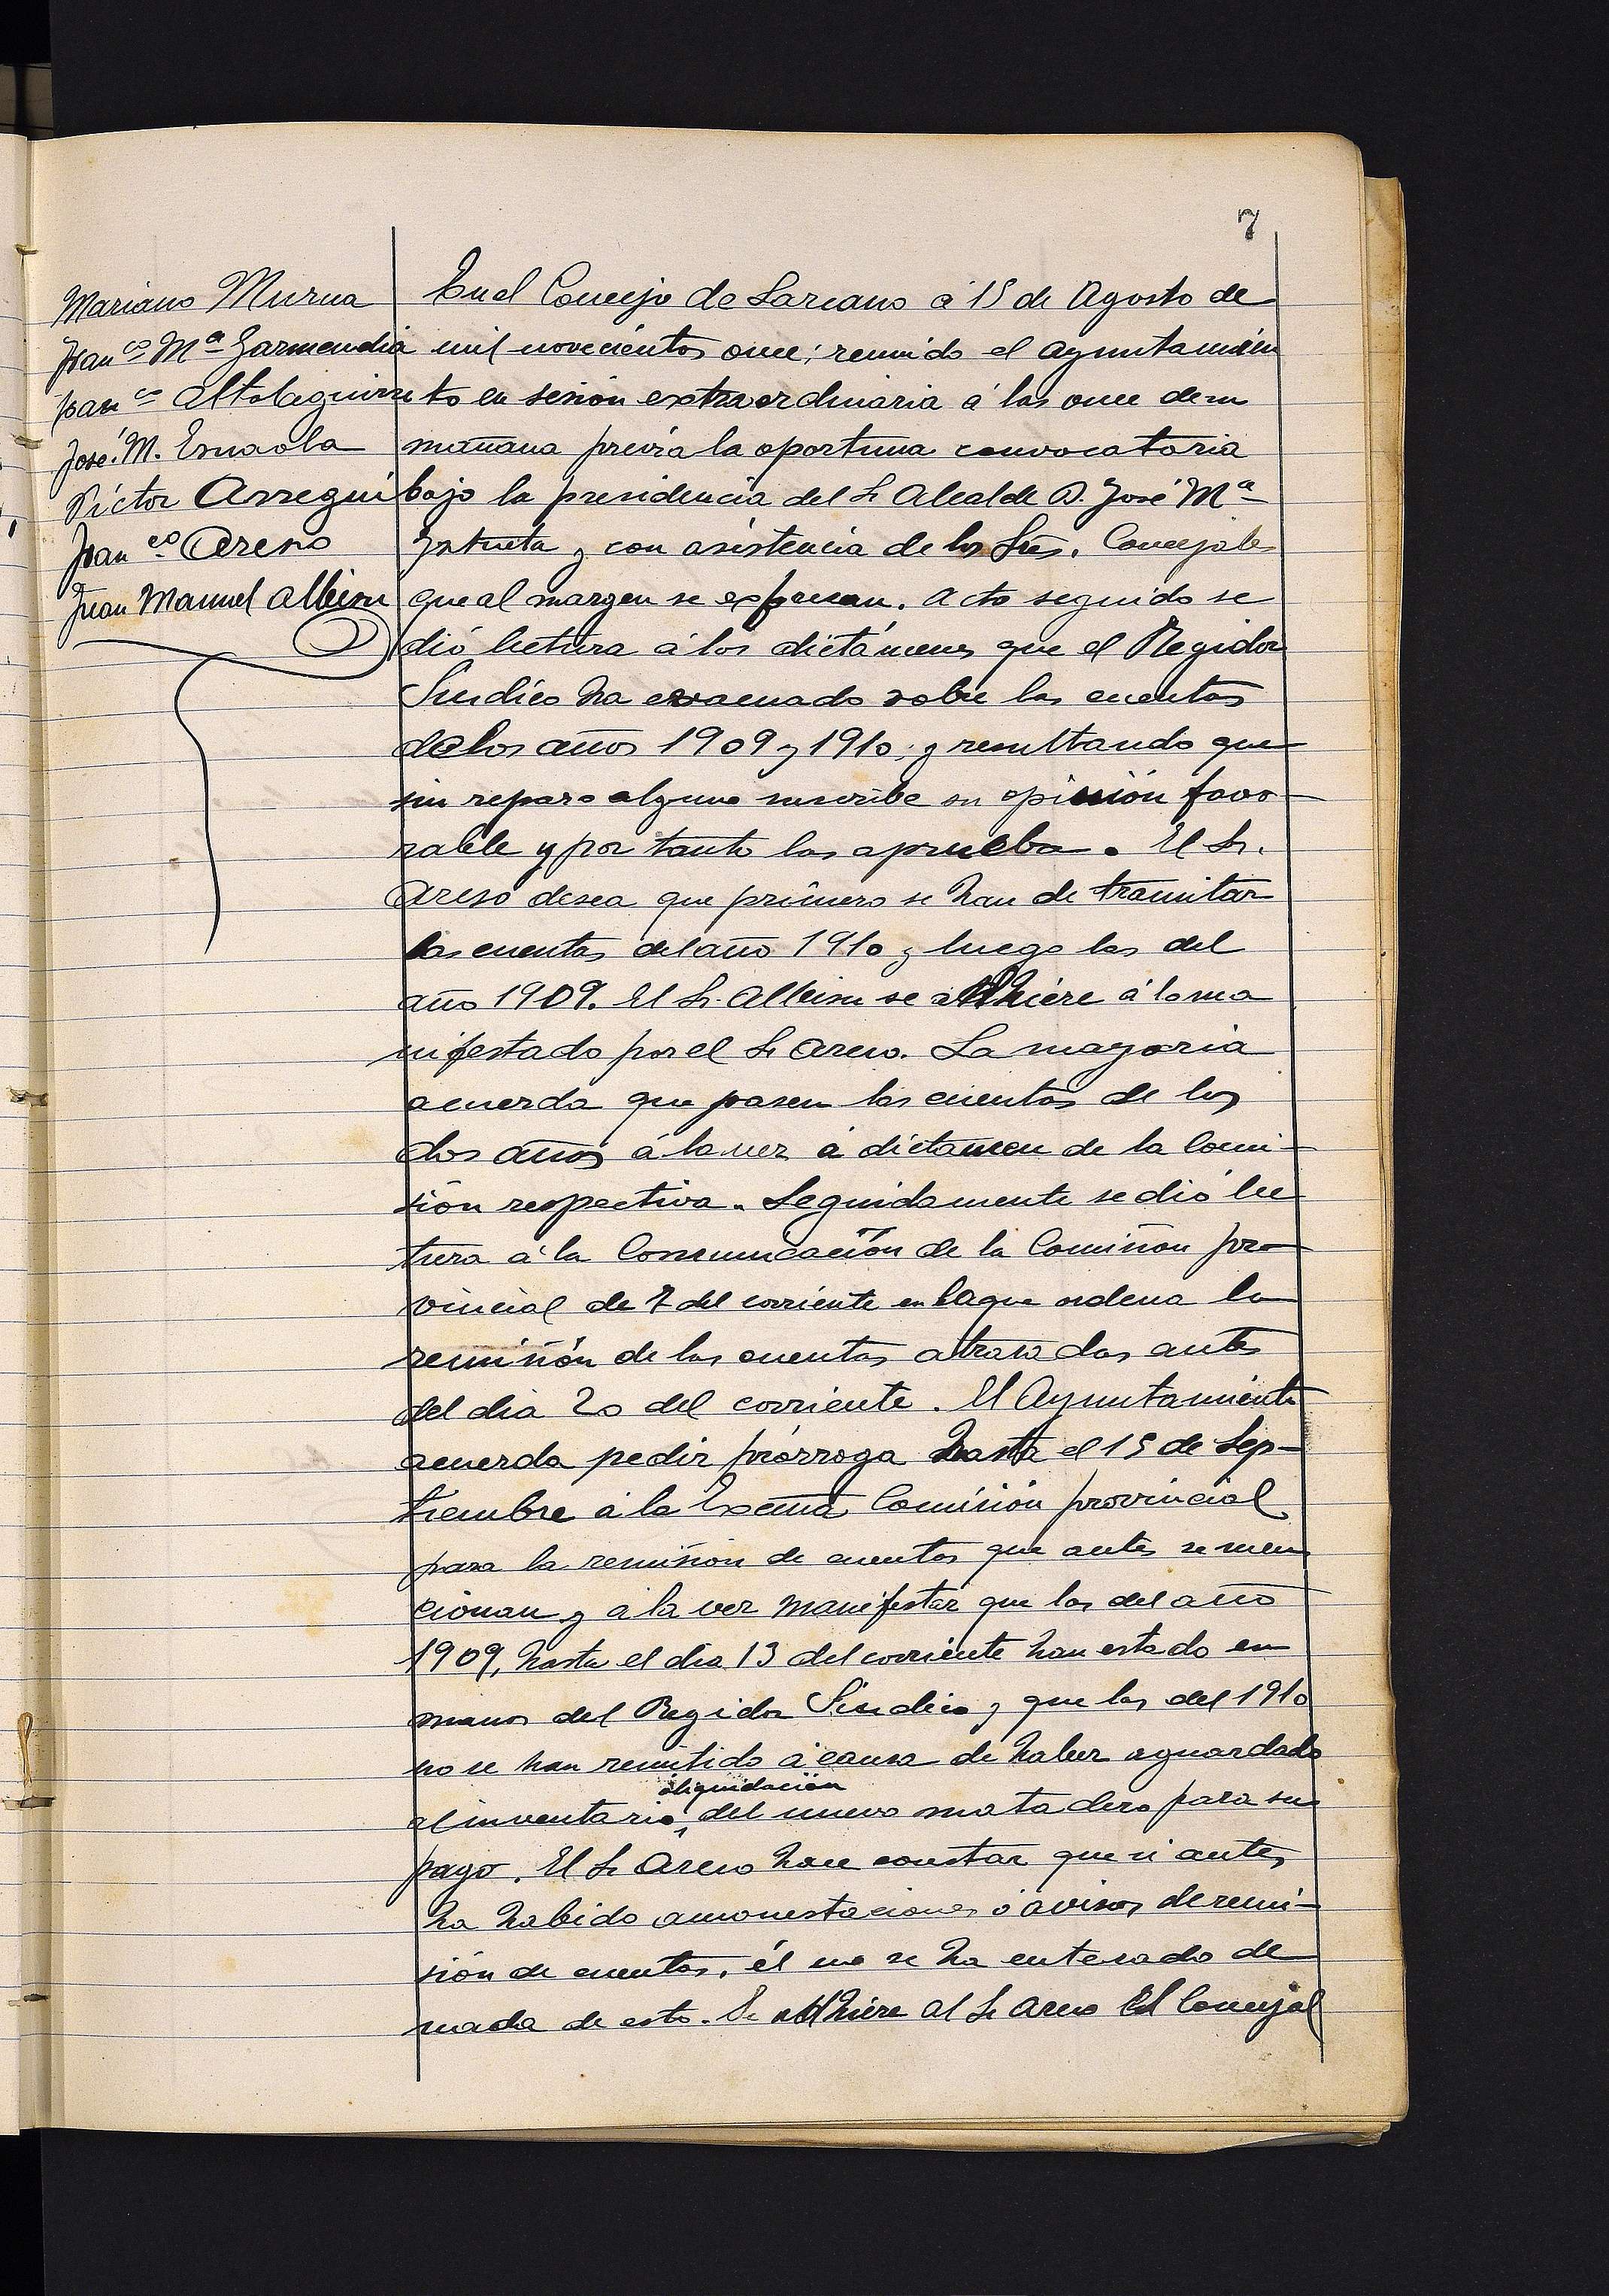 7
Mariano Murua
Franco Ma Garmendia
Franco Altolaguirre
José M. Esnaola
Victor Arregui
Franco Areso
Juan Manuel Albisu
En el Concejo de Lazcano á 15 de Agosto de
mil novecientos once; reunido el ayuntamien
to en sesion extraordinaria á las once de su
mañana previa la oportuna convocatoria
bajo la presidencia del Sr Alcalde D. José Ma
y con asistencia de los Sres. Concejales
que al margen se expresan. Acto seguido se
dió lectura á los dictámenes que el Regidor
Sindico ha evacuado sobre las cuentas
de los años 1909 y 1910; y resultando que
sin reparo alguno suscribe su opinión favo-
rable y por tanto las aprueba. El Sr.
Areso desea que primero se han de tramitar
las cuentas del año 1910 y luego las del
año 1909. El Sr. Albisu se adhiere á lo ma
nifestado por el Sr Areso. La mayoria
acuerda que pasen las cuentas de los
dos años á la vez á dictamen de la Comi-
sión respectiva. Seguidamente se dió lec
tura á la Comunicación de la Comisión pro
vincial de 7 del corriente en la que ordena la
remisión de las cuentas atrasadas antes
del dia 20 del corriente. El Ayuntamiento
acuerda pedir prórroga hasta el 15 de Sep-
tiembre á la Excma Comisión provincial
para la remisión de cuentas que antes se men
cionan y á la vez manifestar que las del año
1909, hasta el dia 13 del corriente han estado en
manos del Regidor Sindico y que las del 1910
no se han remitido á causa de haber aguardado
ó liquidación
al inventario, del nuevo matadero para su
pago. El Sr Areso hace constar que si antes
ha habido amonestaciones ó avisos de remi-
sión de cuentas, él no se ha enterado de
nada de esto. Se adhiere al Sr Areso el Concejal